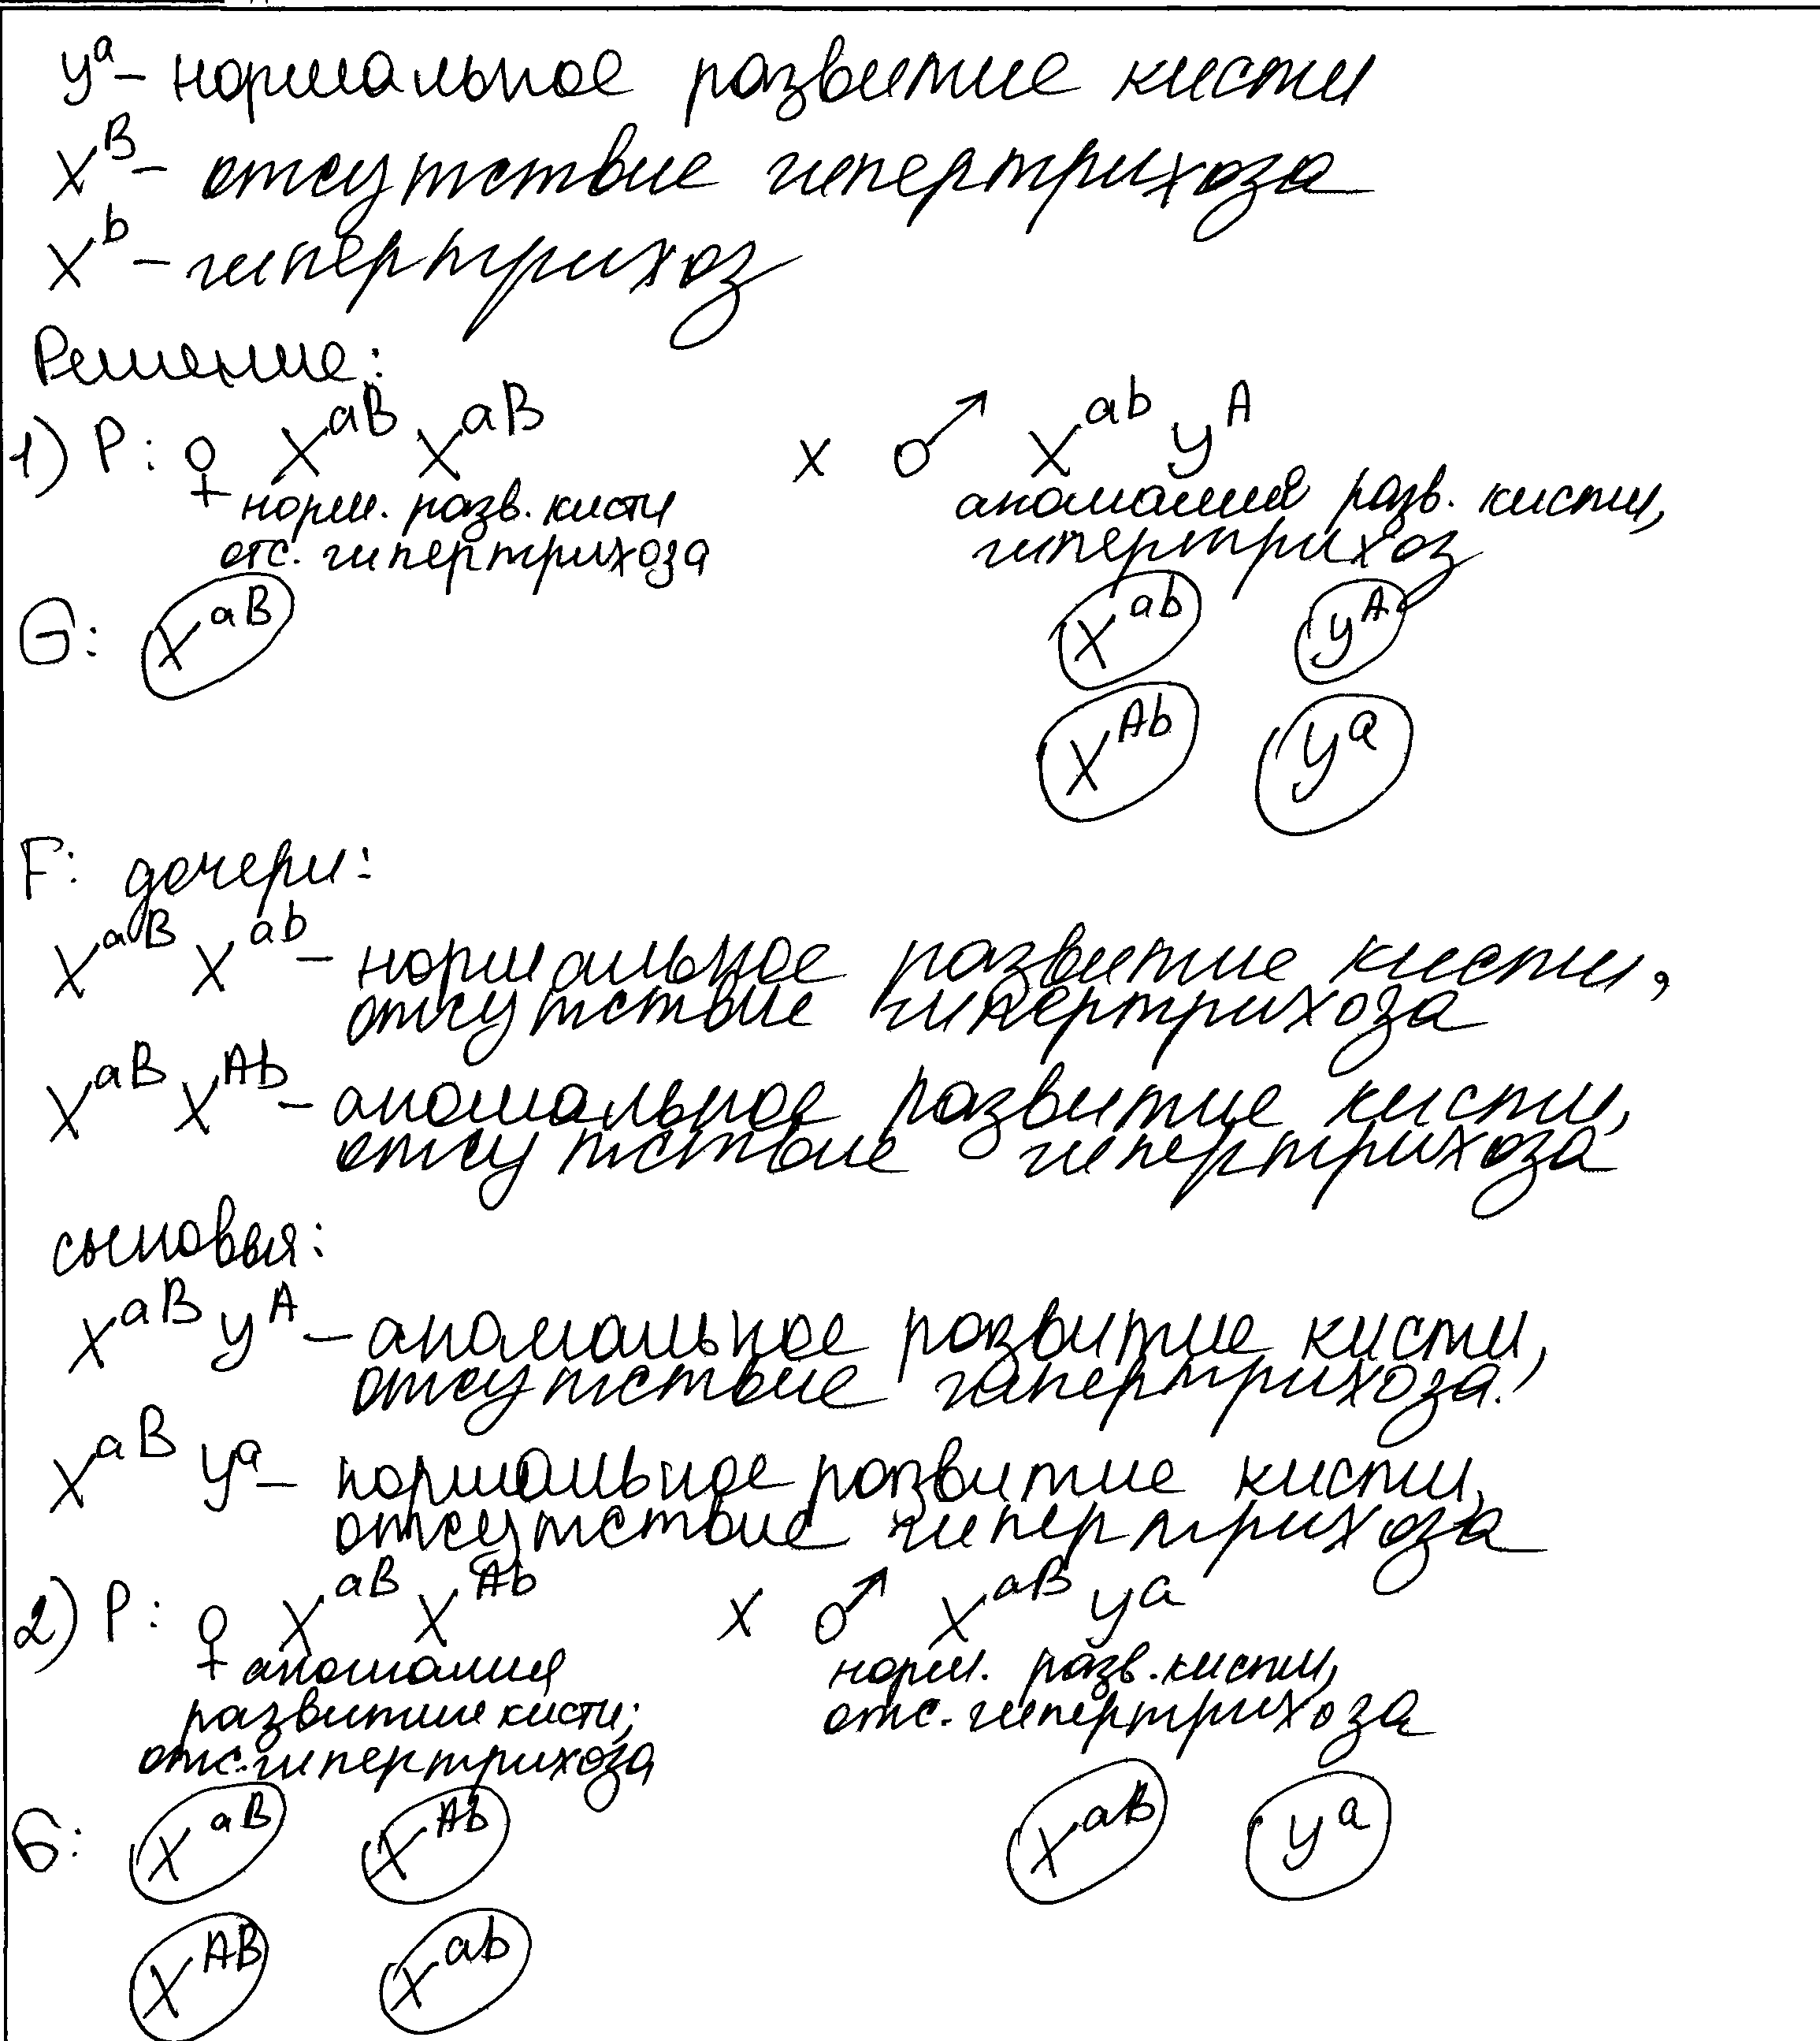 yᵃ – нормальное развитие кисти
Xᴮ – отсутствие гипертрихоза
Xᵇ – гипертрихоз
Решение:
1) P: ♀ XᵃᴮXᵃᴮ x ♂ XᵃᵇYᴬ
норм. разв. кисти аномалия разв. кисти,
отс. гипертрихоза гипертрихоз
G: Xᵃᴮ Xᵃᵇ yᴬ
Xᴬᵇ yᵃ
F: дочери:
XᵃᴮXᵃᵇ – нормальное развитие кисти,
отсутствие гипертрихоза
XᵃᴮXᴬᵇ – аномальное развитие кисти,
отсутствие гипертрихоза
сыновья:
Xᵃᴮyᴬ – аномальное развитие кисти,
отсутствие гипертрихоза.
Xᵃᴮyᵃ – нормальное развитие кисти,
отсутствие гипертрихоза
2) P: ♀ XᵃᴮXᴬᵇ x ♂ Xᵃᴮyᵃ
аномалия норм. разв. кисти,
развитие кисти; отс. гипертрихоза
отс. гипертрихоза
G: Xᵃᴮ Xᴬᵇ Xᵃᴮ yᵃ
Xᴬᴮ Xᵃᵇ